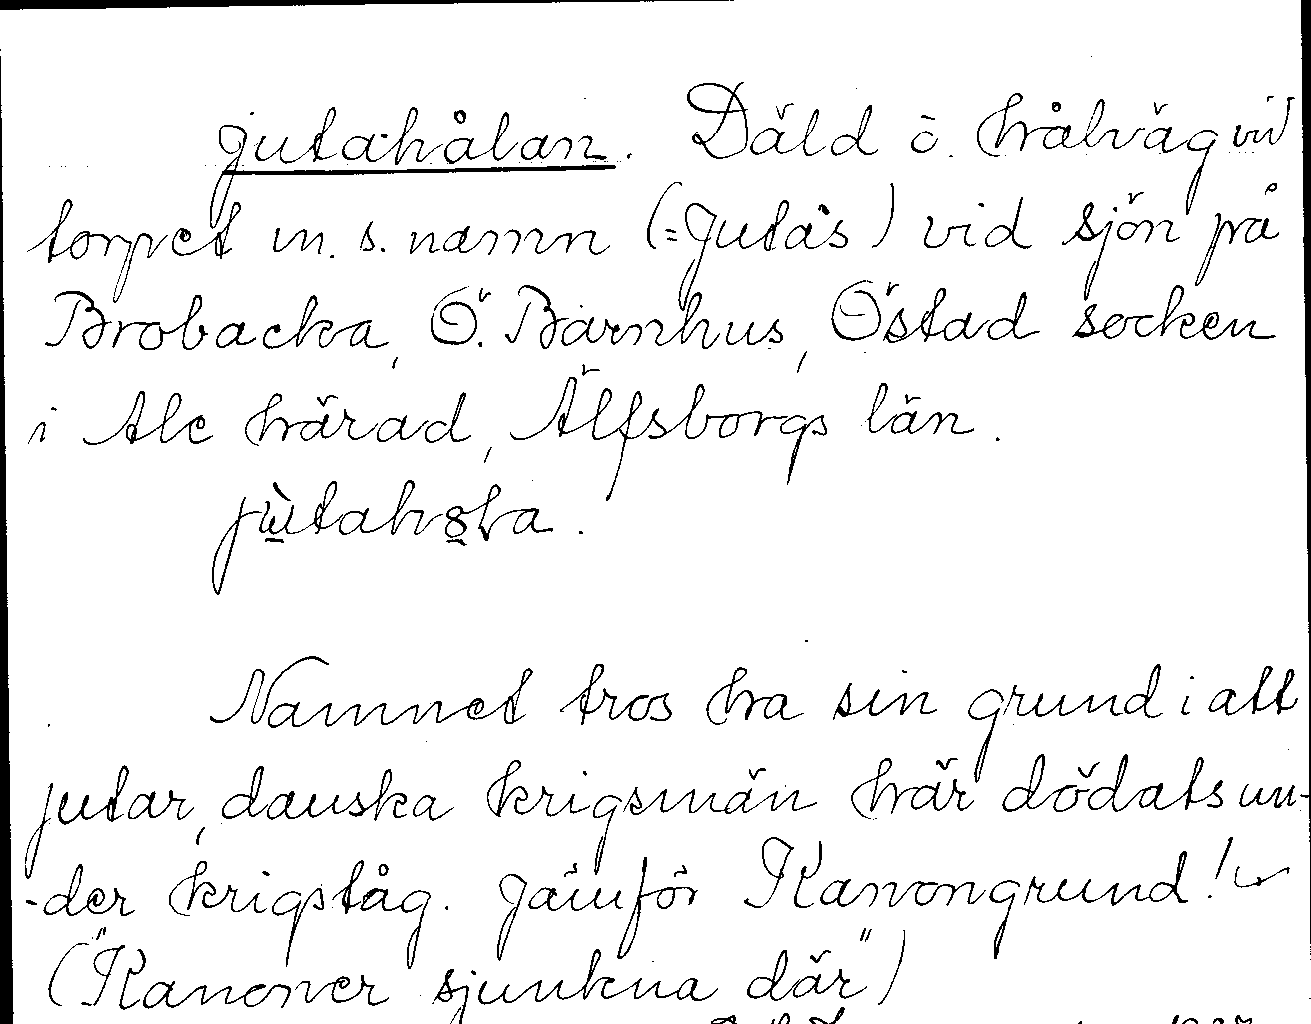 Jutahålan. Däld o. hålväg vid
torpet m. s. namn (=Jutås) vid sjön på
Brobacka, Ö. Barnhus, Östad socken
i Ale härad, Älfsborgs län.
Namnet tros ha sin grund i att
jutar, danska krigsmän här dödats un-
-der krigståg. Jämför Kanongrund!
("Kanoner sjunkna där")